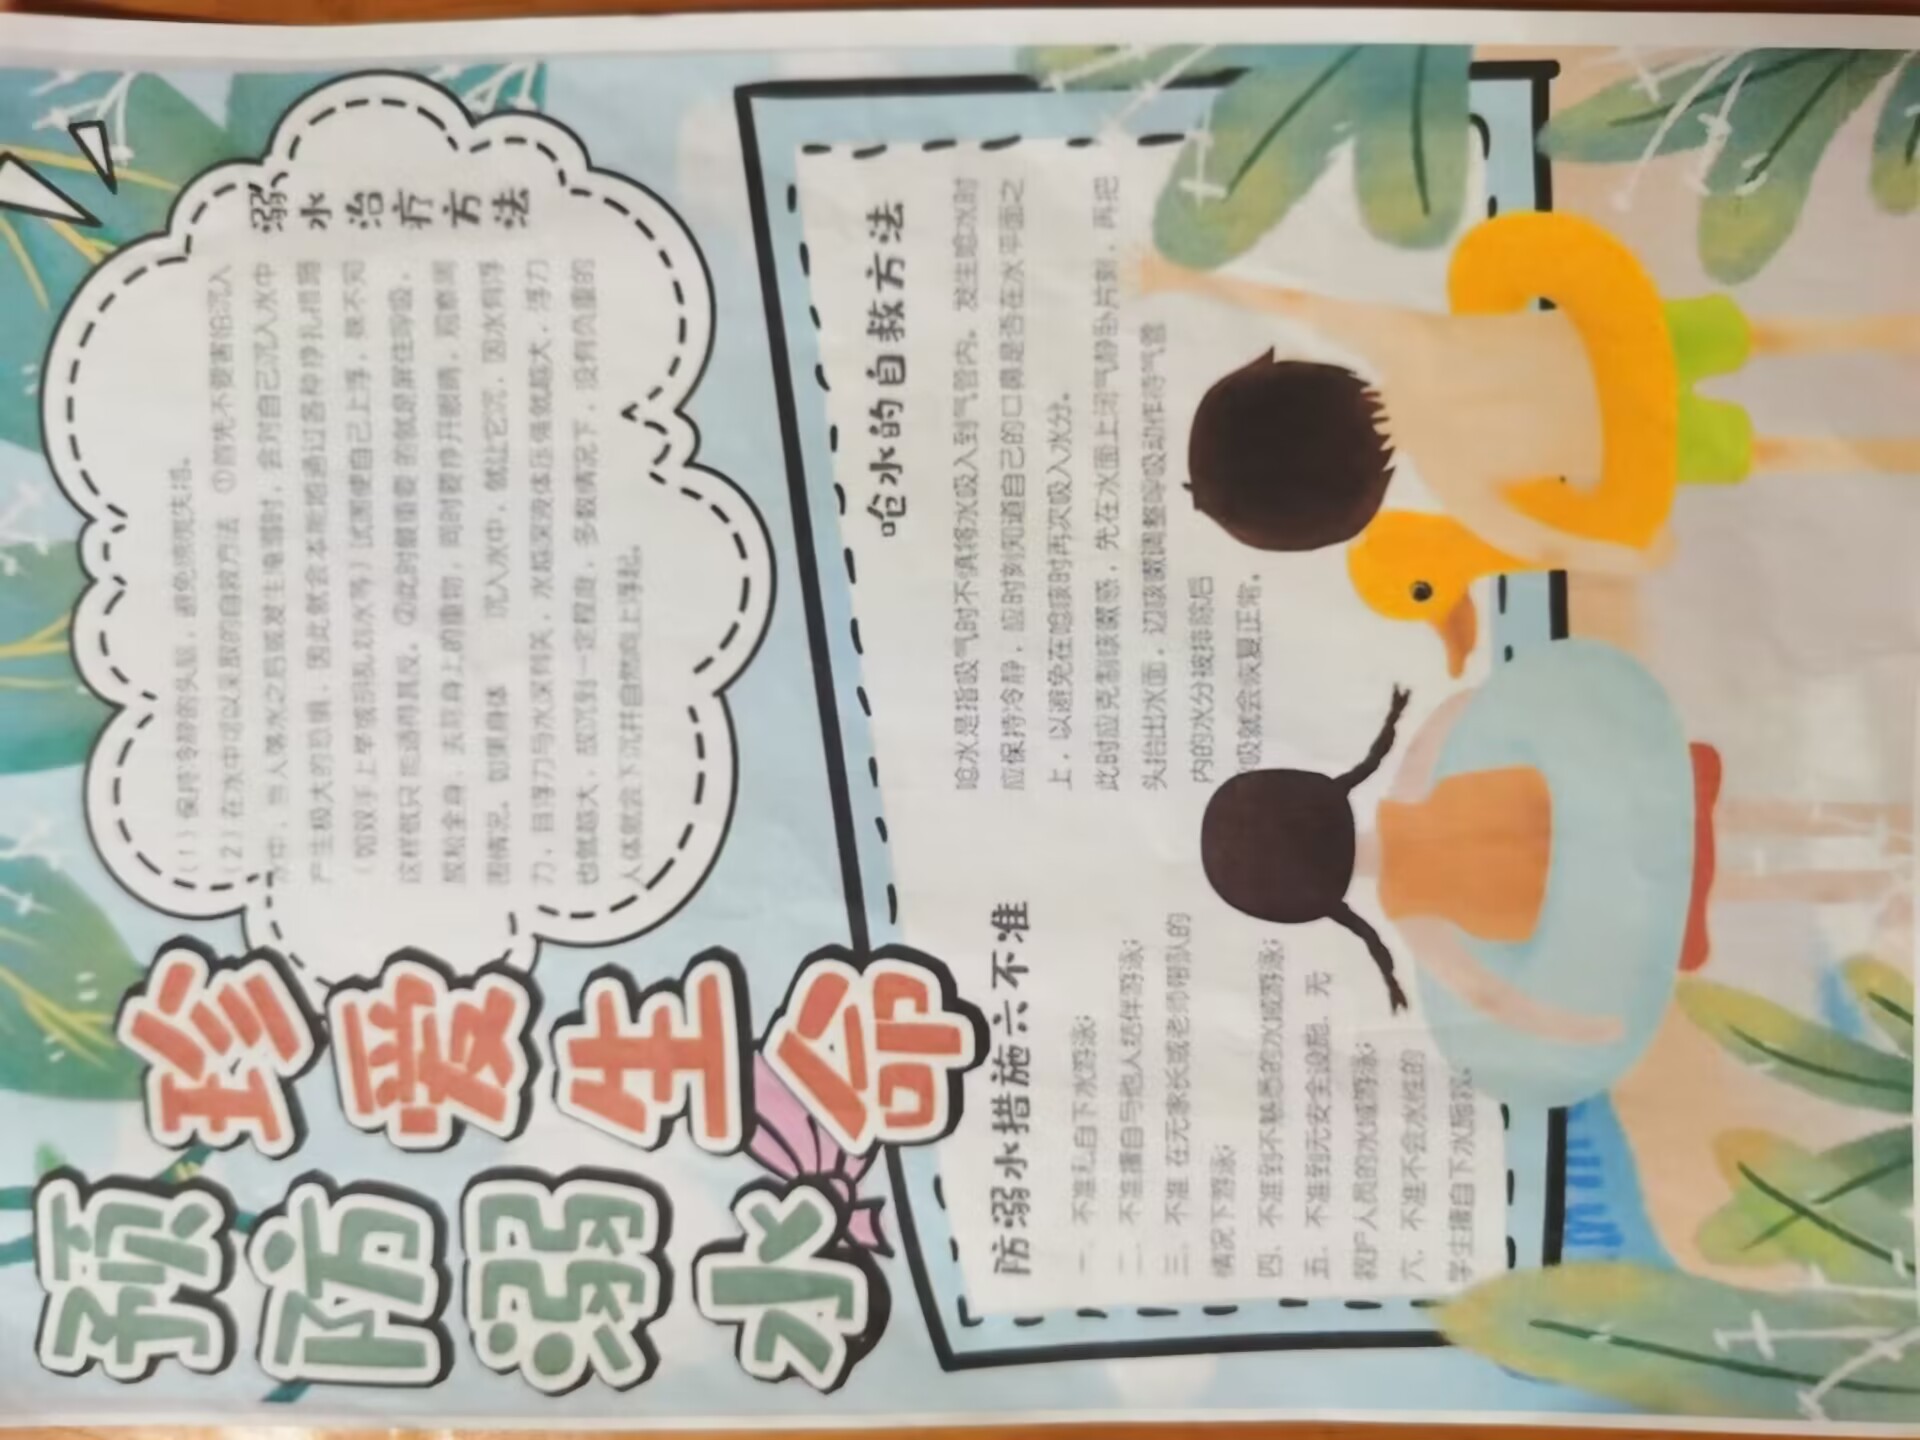 珍爱生命
预防溺水
溺水治疗方法
(1)保持冷静的头脑，避免慌慌失措。
(2)在水中可以采取的自救方法 ①首先不要害怕沉入
水中，当人落水之后或发生淹溺时，会对自己沉入水中
产生极大的恐惧，因此就会本能地通过各种挣扎措施
(如双手上举或胡乱划水等)试图使自己上浮，殊不知
这样做只能适得其反。②此时最重要的就是屏住呼吸，
放松全身，去除身上的重物，同时要睁开眼睛，观察周
围情况。如果身体 沉入水中，就让它沉，因水有浮
力，且浮力与水深有关，水越深液体压强就越大，浮力
也就越大，故沉到一定程度，多数情况下，没有负重的
人体就会下沉并自然向上浮起。
呛水的自救方法
呛水是指吸气时不慎将水吸入到气管内。发生呛水时
应保持冷静，应时刻知道自己的口鼻是否在水平面之
上，以避免在呛咳时再次吸入水分。
此时应克制咳嗽感，先在水面上闭气静卧片刻，再把
头抬出水面，边咳嗽调整呼吸动作待气管
内的水分被排除后
吸就会恢复正常。
防溺水措施六不准
一、不准私自下水游泳;
二、不准擅自与他人结伴游泳;
三、不准 在无家长或老师带队的
情况下游泳;
四、不准到不熟悉的水域游泳;
五、不准到无安全设施、无
救护人员的水域游泳;
六、不准不会水性的
学生擅自下水施救。